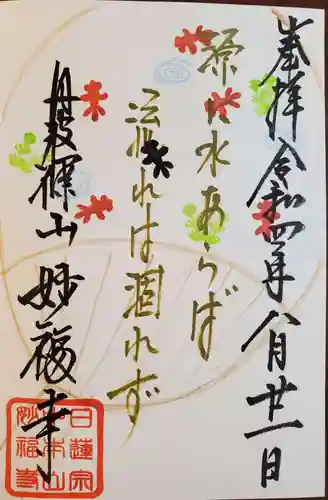 奉拝 令和四年八月廿一日
源に水あらば
流れは涸れず
丹波輝山 妙福寺
日蓮宗
本山
妙福寺